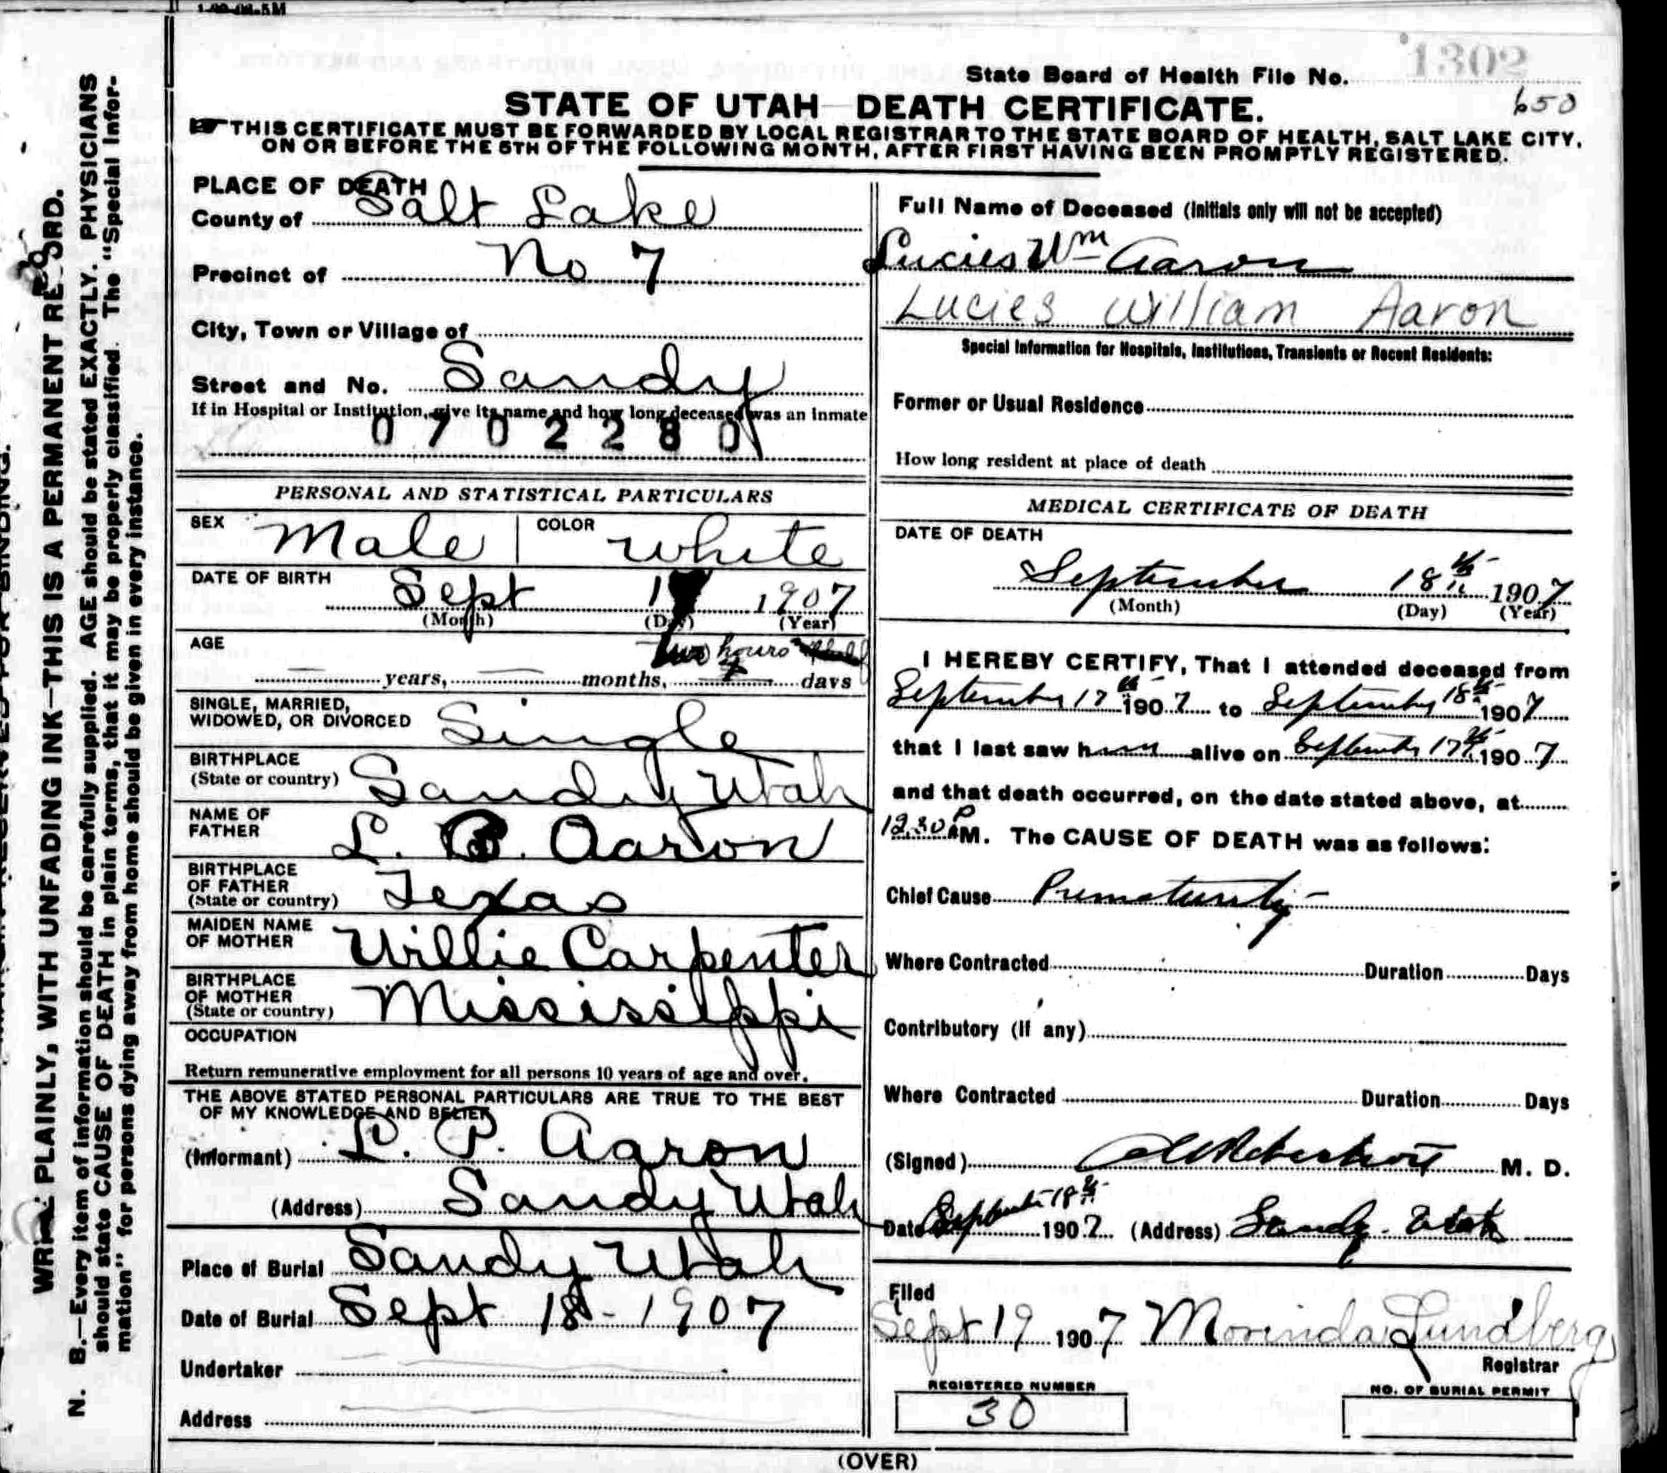 1302
State Board of Health File No.
650
STATE OF UTAH DEATH CERTIFICATE.
THIS CERTIFICATE MUST BE FORWARDED BY LOCAL REGISTRAR TO THE STATE BOARD OF HEALTH, SALT LAKE CITY,
ON OR BEFORE THE 5TH OF THE FOLLOWING MONTH, AFTER FIRST HAVING BEEN PROMPTLY REGISTERED.
WRITE PLAINLY, WITH UNFADING INK—THIS IS A PERMANENT RECORD.
N. B.—Every item of information should be carefully supplied. AGE should be stated EXACTLY. PHYSICIANS
should state CAUSE OF DEATH in plain terms, that it may be properly classified. The "Special Infor-
mation" for persons dying away from home should be given in every instance.
PLACE OF DEATH
County of Salt Lake
Precinct of No 7
City, Town or Village of
Street and No. Sandy
If in Hospital or Institution, give its name and how long deceased was an inmate
0702280
PERSONAL AND STATISTICAL PARTICULARS
SEX Male COLOR White
DATE OF BIRTH Sept 1907
(Month) (Day) (Year)
AGE hours
years, months, days
SINGLE, MARRIED,
WIDOWED, OR DIVORCED Single
BIRTHPLACE
(State or country) Sandy Utah
NAME OF
FATHER L. P. Aaron
BIRTHPLACE
OF FATHER
(State or country) Texas
MAIDEN NAME
OF MOTHER Willie Carpenter
BIRTHPLACE
OF MOTHER
(State or country) Mississippi
OCCUPATION
Return remunerative employment for all persons 10 years of age and over.
THE ABOVE STATED PERSONAL PARTICULARS ARE TRUE TO THE BEST
OF MY KNOWLEDGE AND BELIEF
(Informant) L. P. Aaron
(Address) Sandy Utah
Place of Burial Sandy Utah
Date of Burial Sept 18 - 1907
Undertaker
Address
Full Name of Deceased (Initials only will not be accepted)
Lucies Wm Aaron
Lucies William Aaron
Special Information for Hospitals, Institutions, Transients or Recent Residents:
Former or Usual Residence
How long resident at place of death
MEDICAL CERTIFICATE OF DEATH
DATE OF DEATH
September 18th 1907
(Month) (Day) (Year)
I HEREBY CERTIFY, That I attended deceased from
September 17th 1907 to September 18th 1907
that I last saw him alive on September 17th 1907
and that death occurred, on the date stated above, at
12.30 P M. The CAUSE OF DEATH was as follows:
Chief Cause Prematurity
Where Contracted Duration Days
Contributory (If any)
Where Contracted Duration Days
(Signed) M. D.
Date September 18th 1907 (Address) Sandy. Utah
Filed
Sept 19 1907 Morinda Lundberg
Registrar
REGISTERED NUMBER
30
NO. OF BURIAL PERMIT
(OVER)